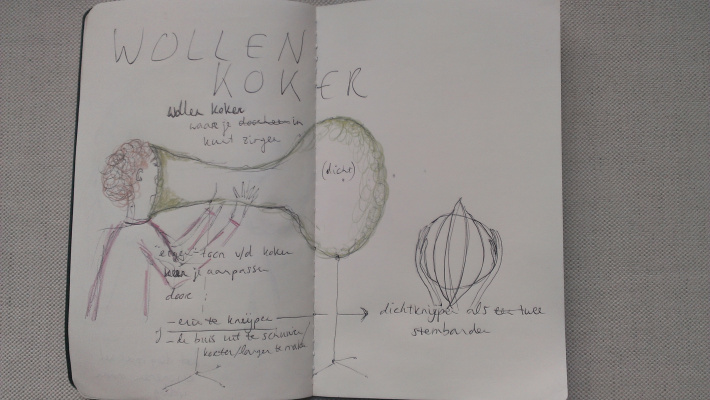 WOLLEN
KOKER
Wollen koker
waar je doorheen
kunt zingen
(dicht)
toon v/d koker
je aanpassen
door :
- erin te knijpen
- de buis uit te schuiven/
korter/langer te maken
dichtknijpen als een twee
stembanden